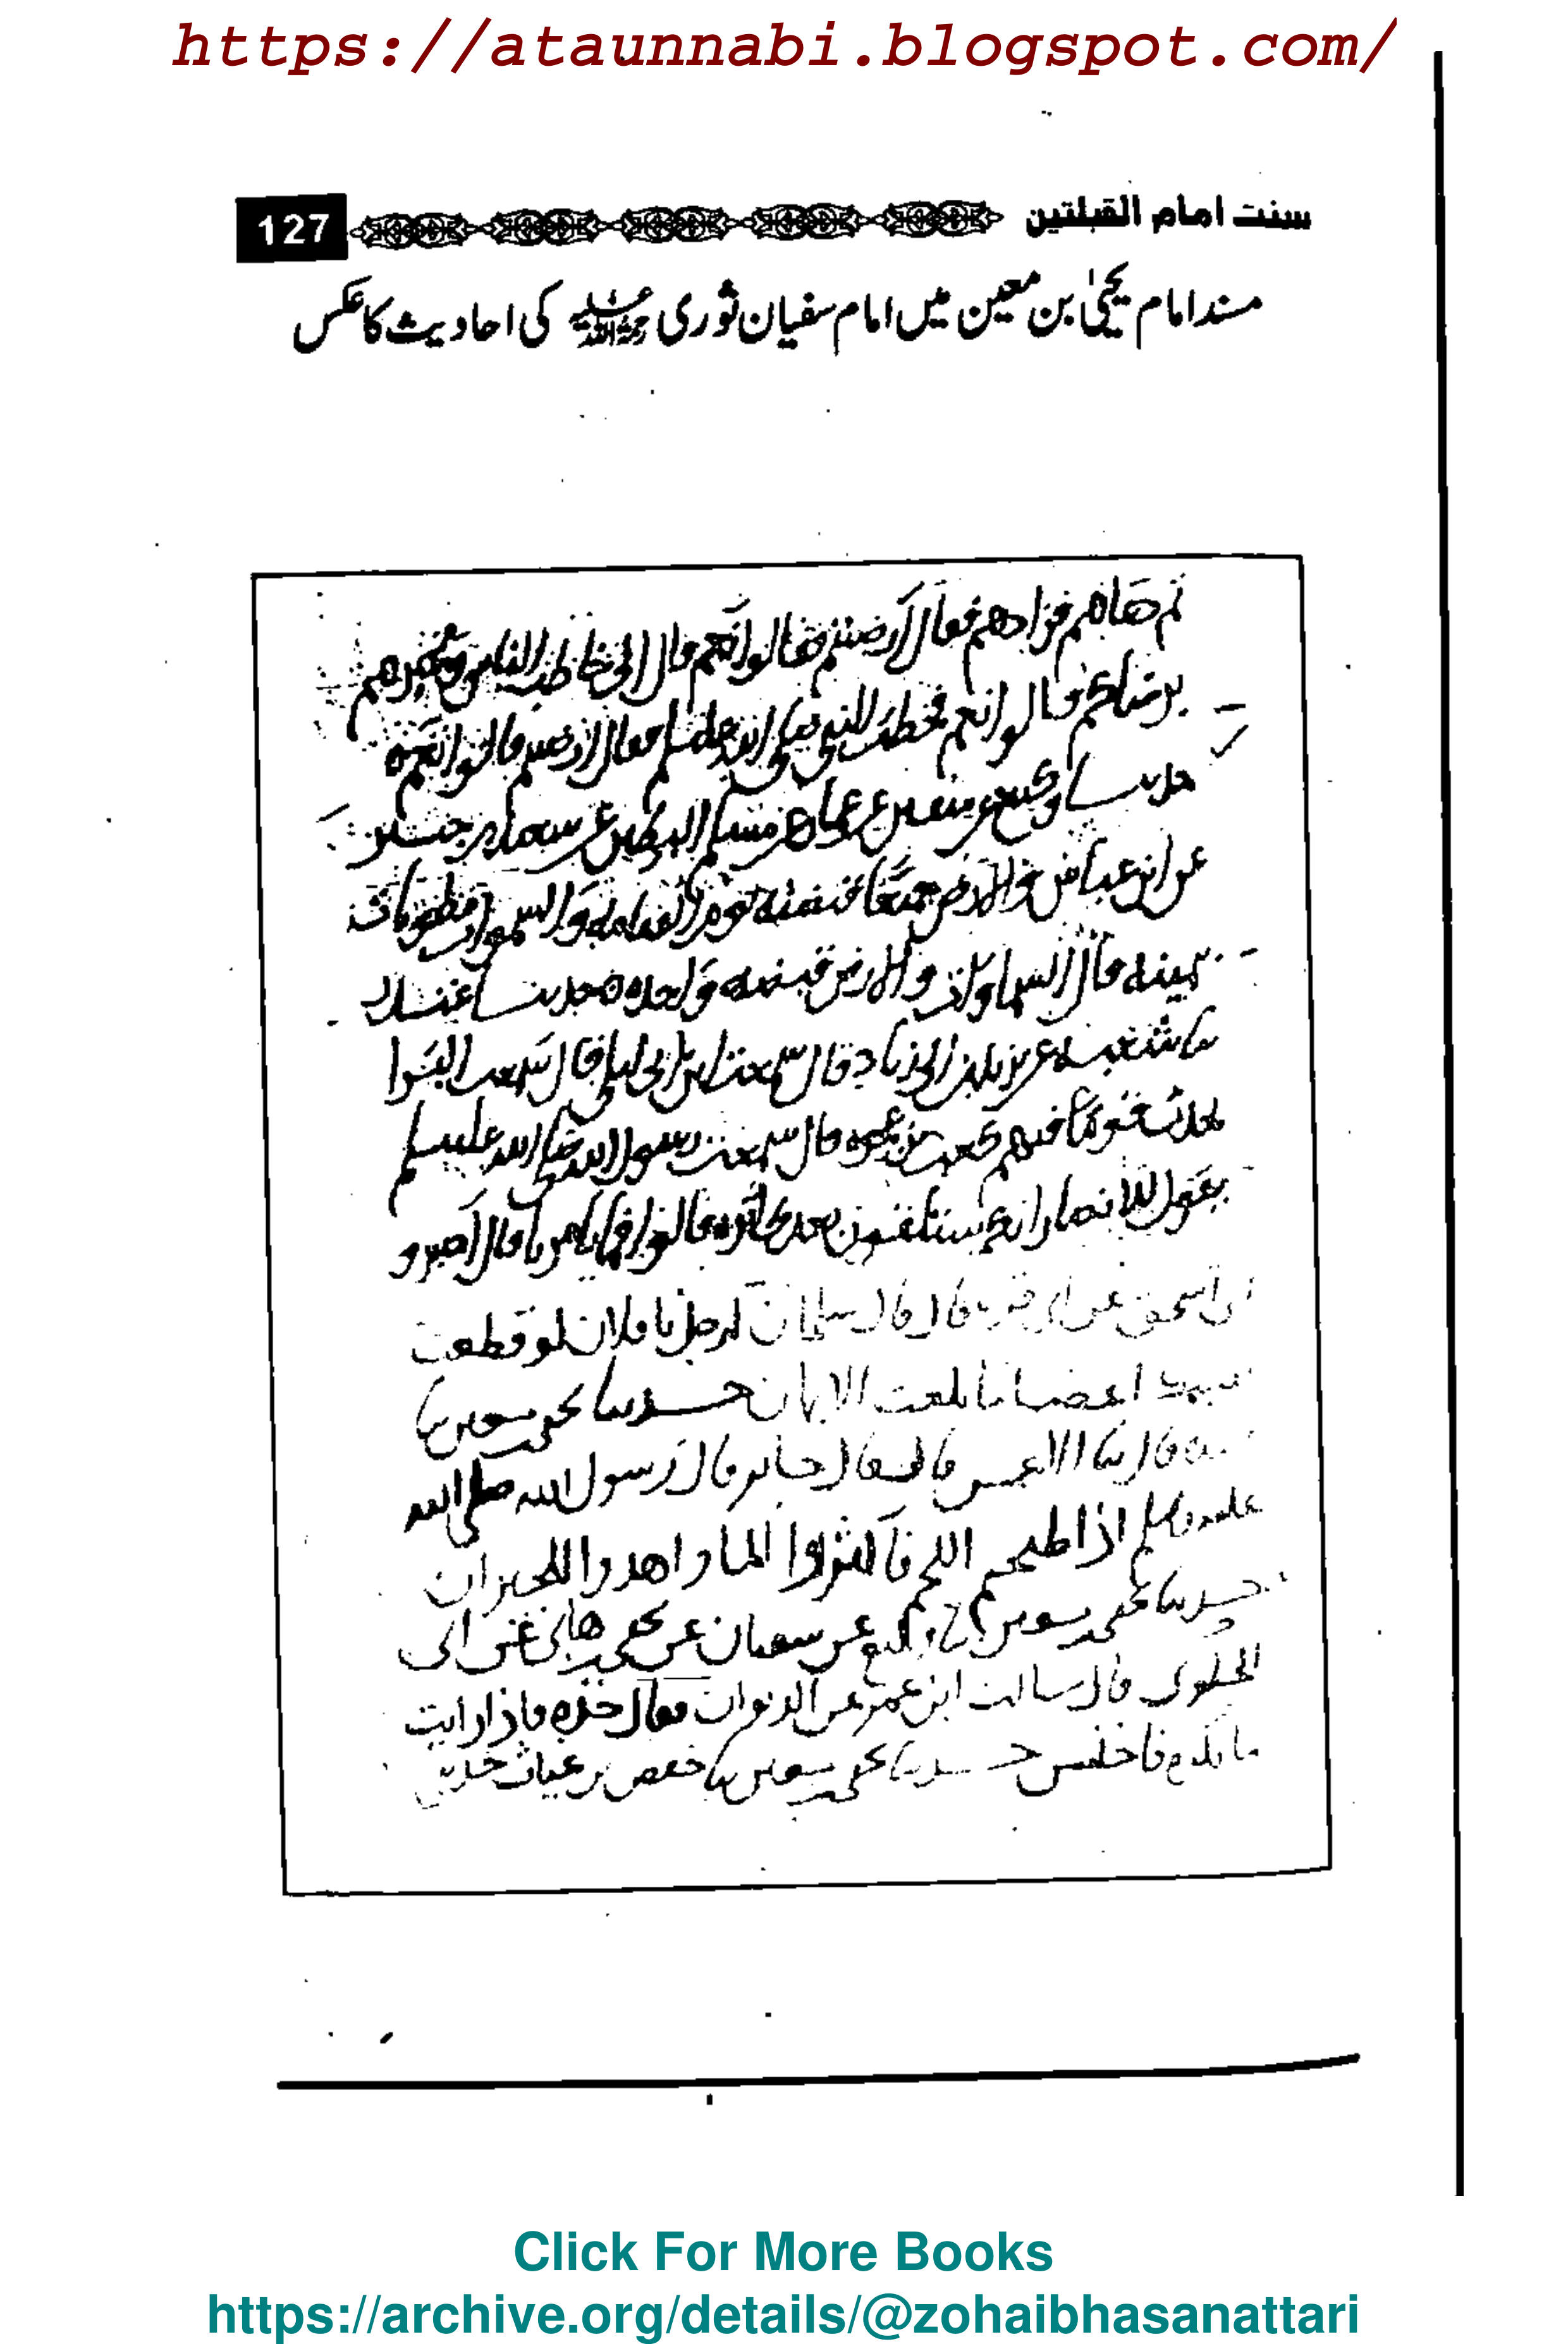 https://ataunnabi.blogspot.com/
سنت امام القبلتین 127
مسند امام یحییٰ بن معین میں امام سفیان ثوری رحمۃ اللہ علیہ کی احادیث کا عکس
فزادهم فقال ارضيتم فقالوا نعم قال انى خاطب الناس ومخبرهم
برضاكم قالوا نعم فخطب النبى صلى الله عليه وسلم فقال ارضيتم قالوا نعم
حدثنا وكيع عن سفين عن عمار عن مسلم البطين عن سعيد بن جبير
عن ابن عباس والارض جميعا قبضته يوم القيامة والسموات مطويات
بيمينه قال السماوات والارض قبضته واحدة حدثنا غندر
شعبة عن يزيد بن ابى زياد قال سمعت ابن ابى ليلى قال سمعت البراء
يحدث قوما فيهم كعب بن عجرة قال سمعت رسول الله صلى الله عليه وسلم
يقول للانصار انكم ستلقون بعدى اثرة قالوا فما تامرنا قال اصبروا
قال قال سلمان لرجل يا فلان لو قطعت
اعضا ما بلغت الايمان حدثنا يحيى بن معين
قال الاعمش قال قال جابر قال رسول الله صلى الله
عليه وسلم اذا طبختم اللحم فاكثروا الماء واهدوا للجيران
حدثنا يحيى بن معين وكيع عن سفيان عن يحيى بن هانئ عن ابى
قال سالت ابن عمر عن الديوان فقال خذه فاذا رايت
حدثنا يحيى بن معين حفص بن غياث
Click For More Books
https://archive.org/details/@zohaibhasanattari